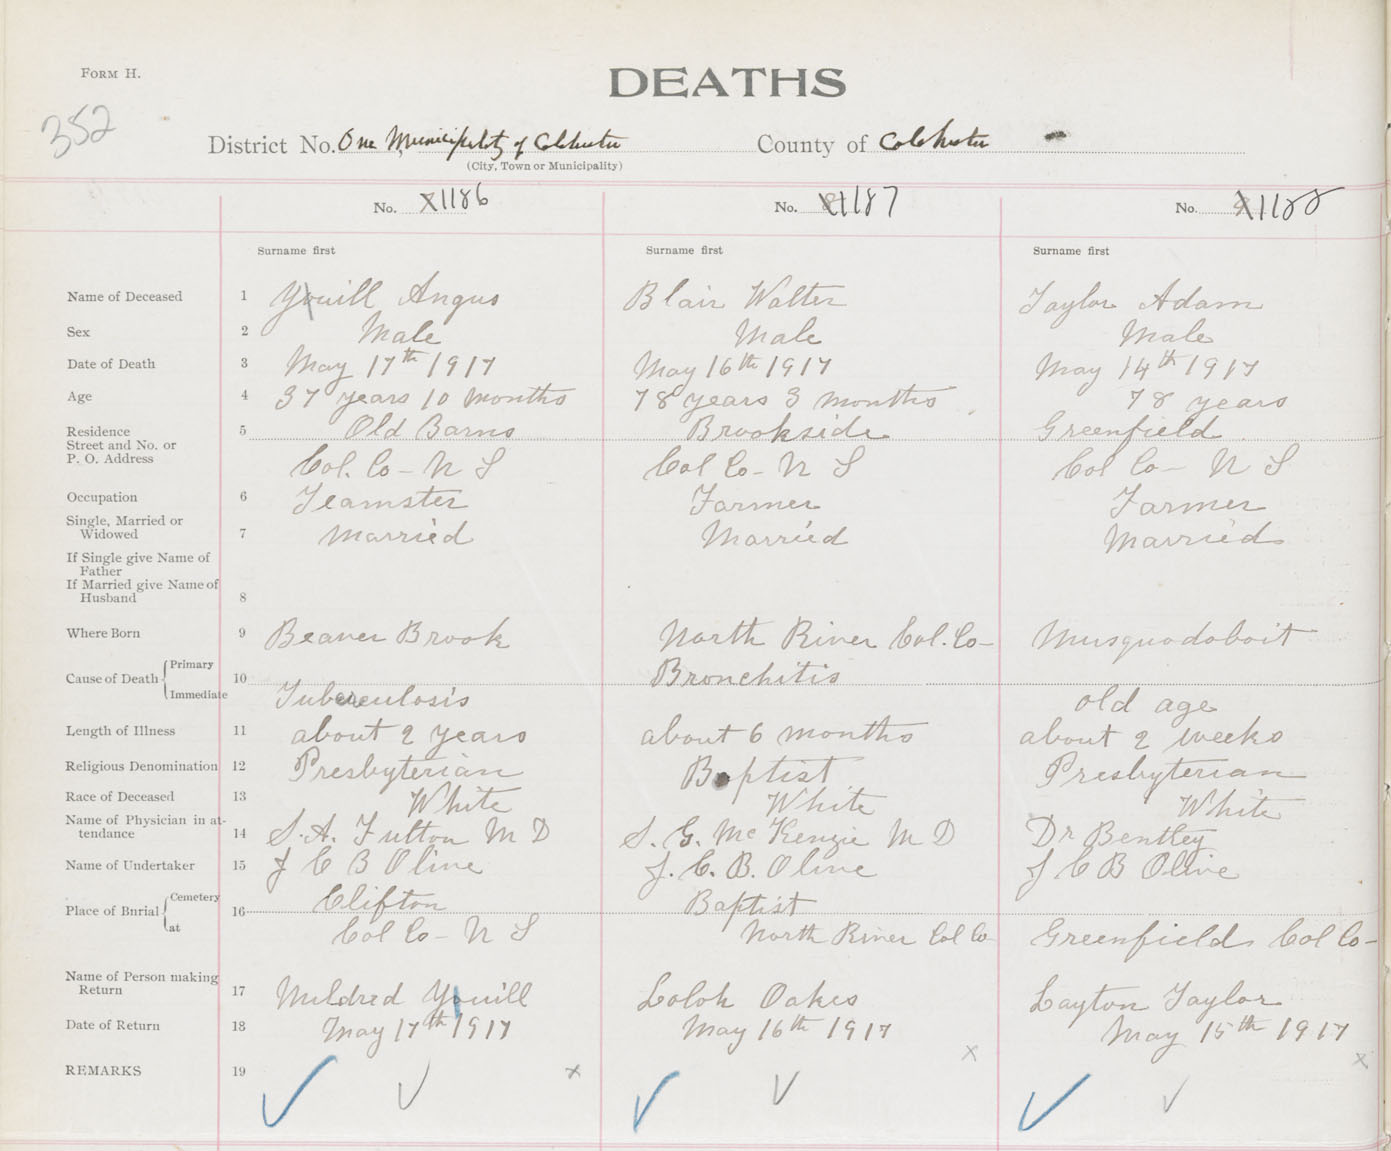 FORM H.
DEATHS
352
District No. One Municipality of Colchester County of Colchester
(City, Town or Municipality)
No. 1186 No. 1187 No. 1188
Surname first Surname first Surname first
Name of Deceased 1 Youill Angus Blair Walter Taylor Adam
Sex 2 Male Male Male
Date of Death 3 May 17th 1917 May 16th 1917 May 14th 1917
Age 4 37 years 10 months 78 years 3 months 78 years
Residence 5 Old Barns Brookside Greenfield
Street and No. or
P. O. Address Col. Co - N S Col Co - N S Col Co - N S
Occupation 6 Teamster Farmer Farmer
Single, Married or
Widowed 7 Married Married Married
If Single give Name of
Father
If Married give Name of
Husband 8
Where Born 9 Beaver Brook North River Col. Co - Musquodoboit
Cause of Death Primary 10 Bronchitis
Immediate Tuberculosis old age
Length of Illness 11 about 2 years about 6 months about 2 weeks
Religious Denomination 12 Presbyterian Baptist Presbyterian
Race of Deceased 13 White White White
Name of Physician in at-
tendance 14 S. A. Fulton M D S. G. McKenzie M D Dr Bentley
Name of Undertaker 15 J C B Olive J. C. B. Olive J C B Olive
Place of Burial Cemetery 16 Clifton Baptist
at Col Co - N S North River Col Co Greenfield Col Co -
Name of Person making
Return 17 Mildred Youill Oakes Layton Taylor
Date of Return 18 May 17th 1917 May 16th 1917 May 15th 1917
REMARKS 19 x x x